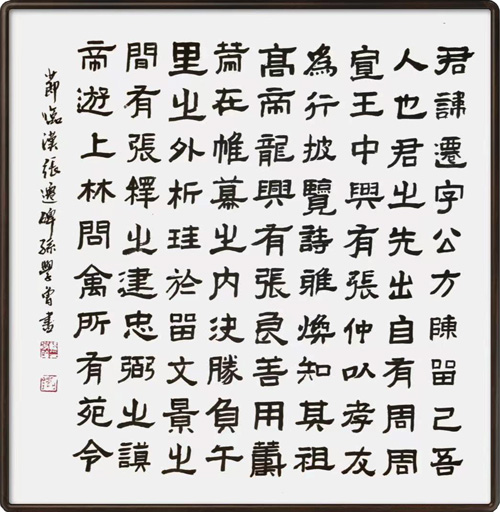 君諱遷字公方陳留己吾
人也君之先出自有周周
宣王中興有張仲以孝友
為行披覽詩雅煥知其祖
高帝龍興有張良善用籌
策在帷幕之内決勝負千
里之外析珪於留文景之
間有張釋之建忠弼之謨
帝遊上林問禽所有苑令
節臨漢張遷碑孫學曾書